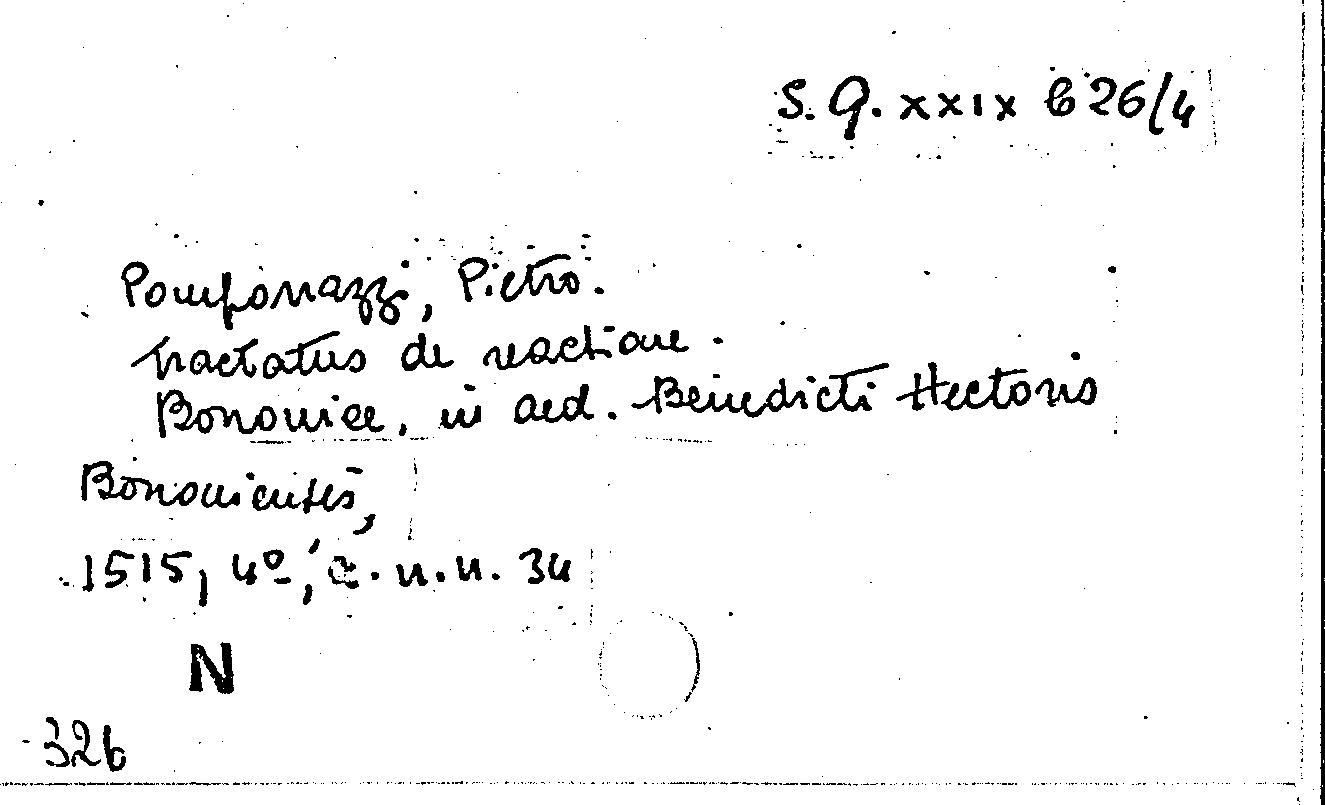 S. Q. XXIX B 26/4
Pomponazzi, Pietro.
Tractatus de reactione.
Bononiae, in aed. Benedicti Hectoris
Bononiensis,
1515, 4º, c. n. n. 34
N
326